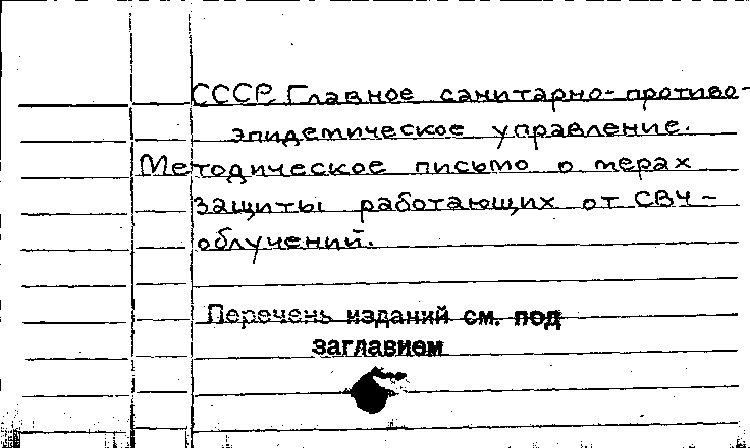 СССР. Главное санитарно-противо-
эпидемическое управление.
Методическое письмо о мерах
защиты работающих от СВЧ-
облучений.
Перечень изданий см. под
заглавием